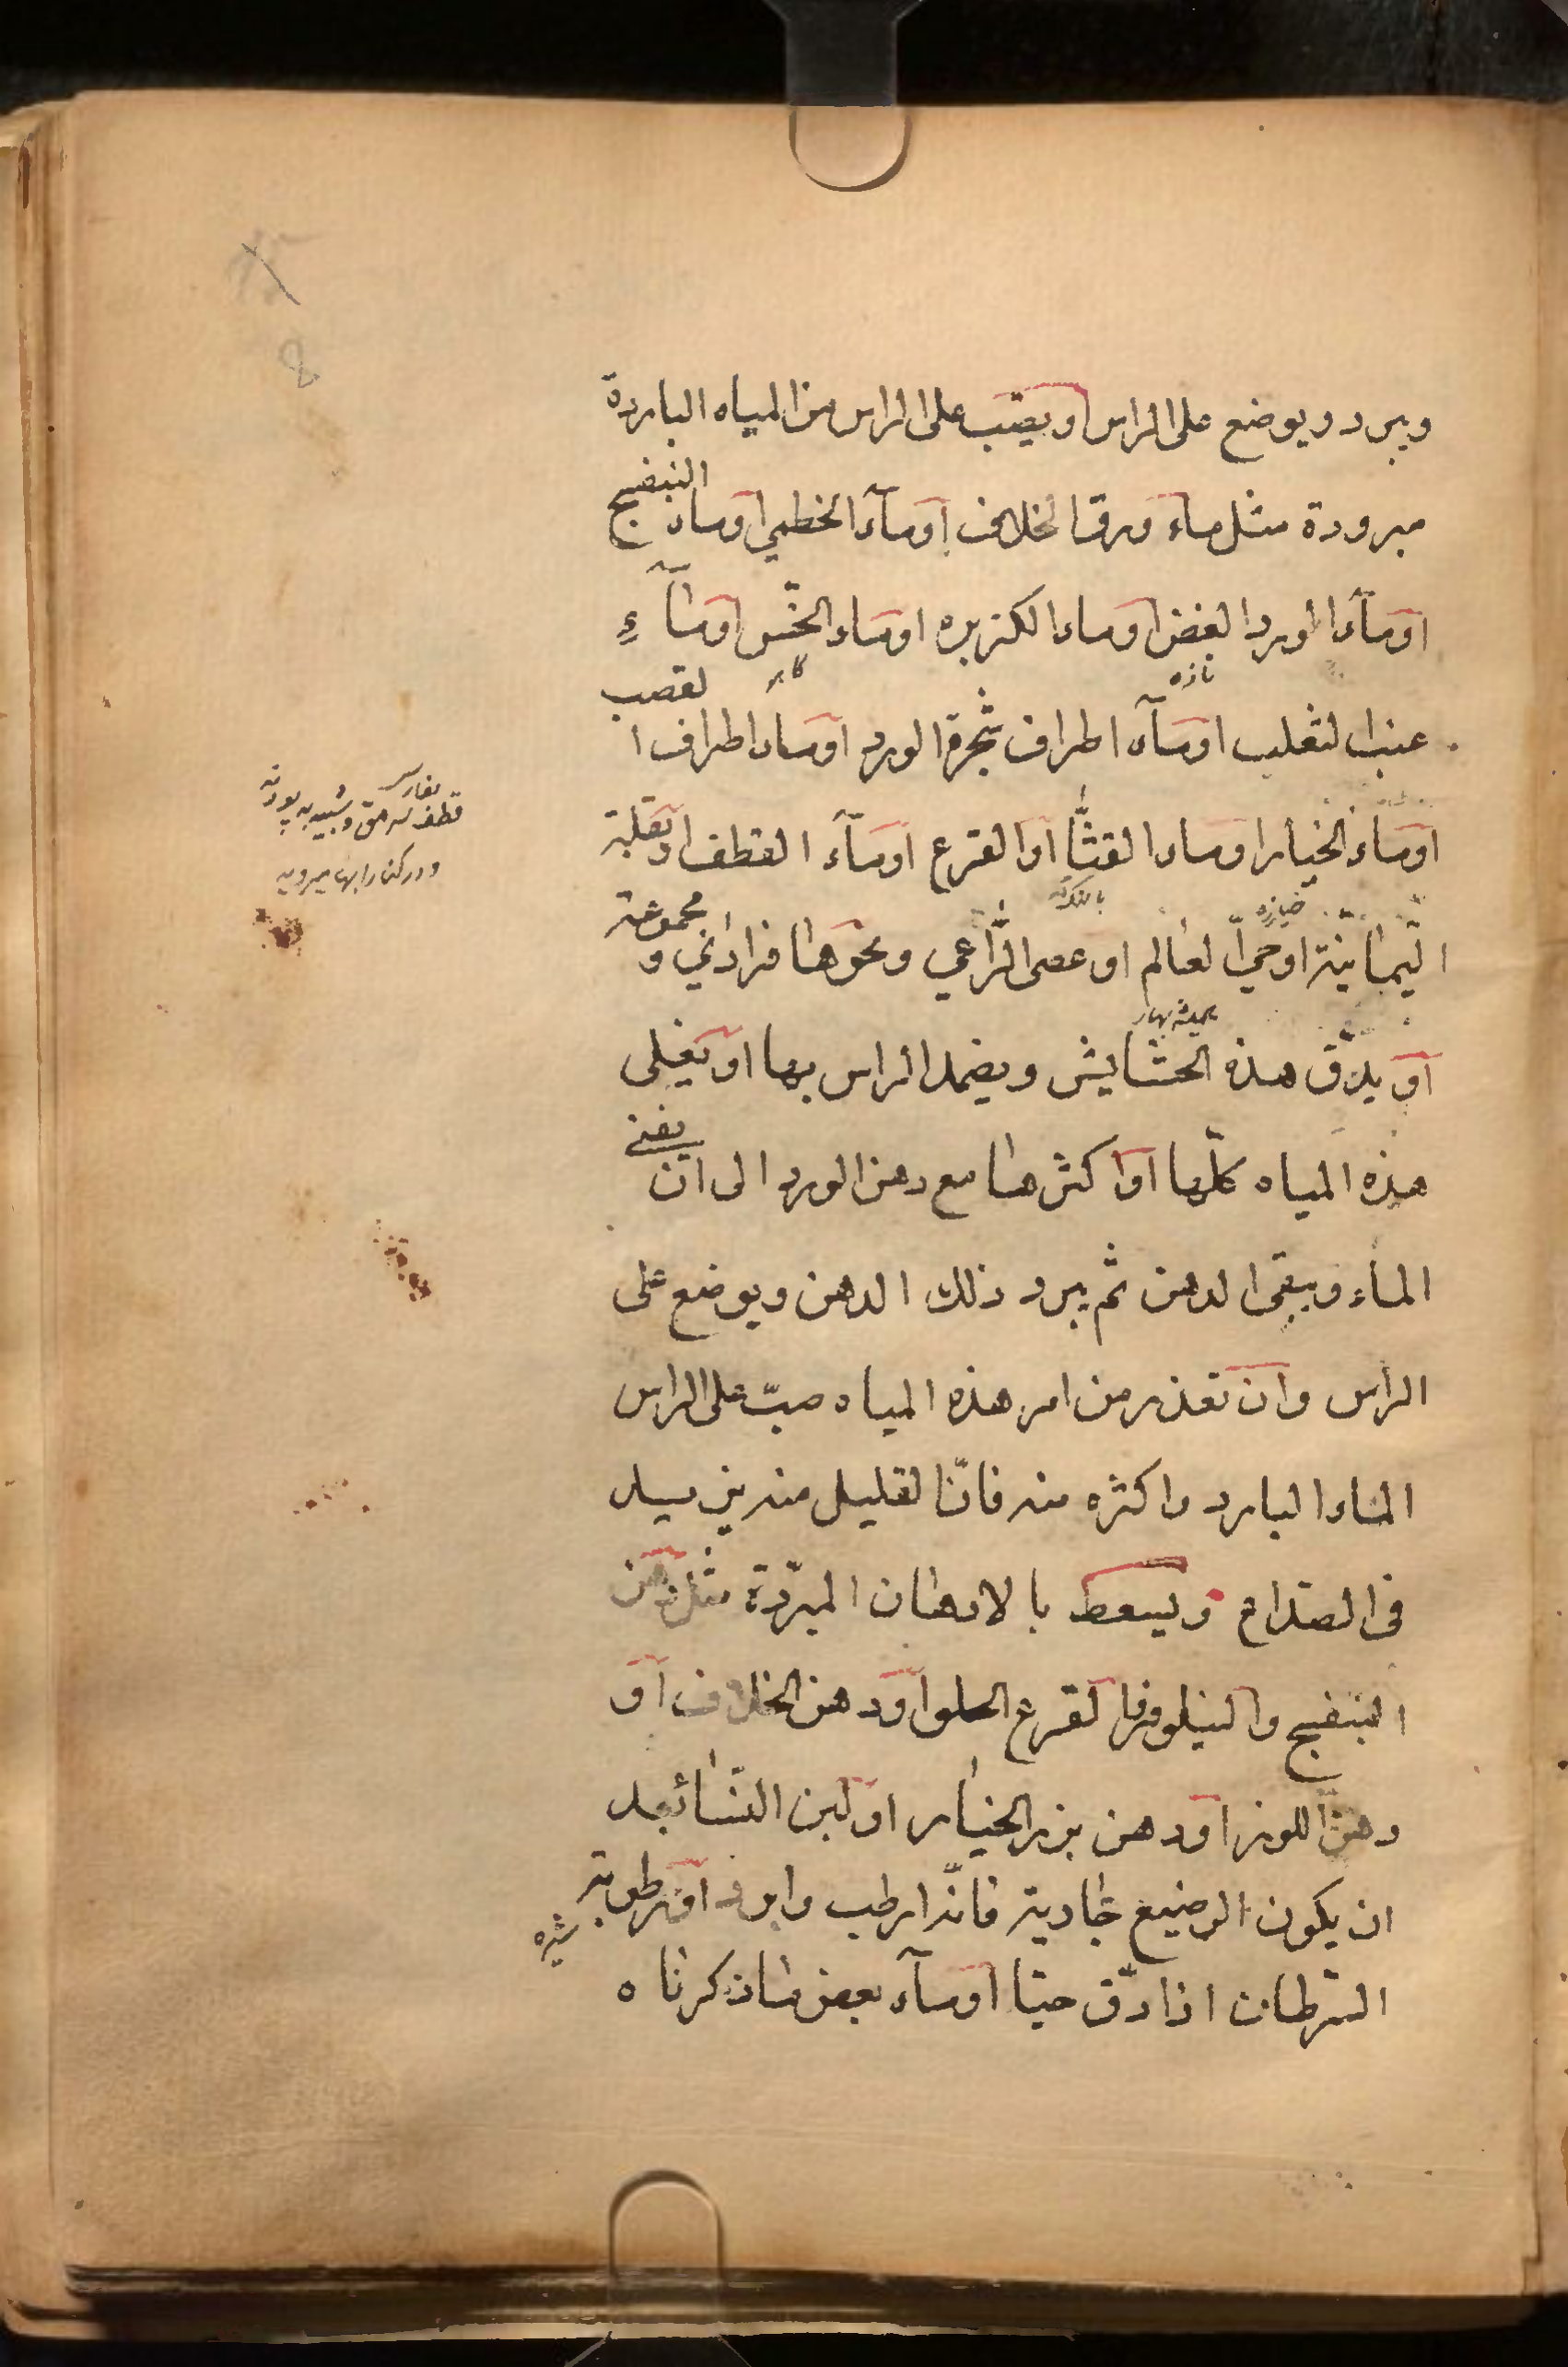 ويبرد ويوضع على الراس او يصّب على الراس من المياه الباردة
مبرودة مثل ماء ورق الخلاف او مآء الخطمي او ماء البنفسج
او مآء الورد الغض او ماء الكزبره او ماء الخّس او مآءِ
تازه
كاهو
عنب الثعلب او مآء اطراف شجرة الورد او ماء اطراف القصب
او ماء الخيار او ماء القثّا او القرع او مآء القطف او بقلة
بفارسى
قطف سرمق وشبيه به پودنه
ودر كنار ابها ميرويد
خيازه
اليّمانيّة او حيّ العالم او عصى الرّاعي ونحوها فرادٰي ومجموعة
هميشه بهار
او يدّق هذه الحشايش ويضمد الراس بها او يغلى
هذه المياه كلّها او اكثرها مع دهن الورد الى ان يفنى
الماء ويبقى الدهن ثم يبرد ذلك الدهن ويوضع على
الراس وان تعذر من امر هذه المياه صبّ على الراس
الماء البارد واكثره منه فانّ القليل منه يزيد
فى الصداع ويسعط بالادهان المبرّدة مثل دهن
البنفسج والنيلوفر القرع الحلو او دهن الخلاف او
دهن اللوز او دهن بزر الخيار او لبن النّسا بعد
ان يكون الرضيع جارية فانّه ارطب وابرد او رطوبة
شيره
السّرطان اذا دّق حيّا او مآء بعض ما ذكرناه